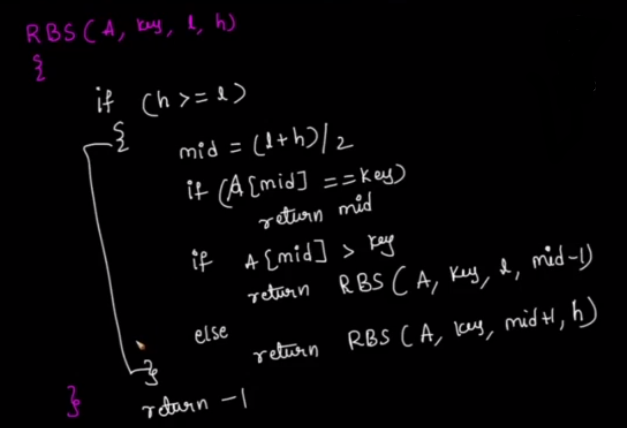 RBS (A, key, l, h)
{
if (h >= l)
{
mid = (l+h)/2
if (A[mid] == key)
return mid
if A[mid] > key
return RBS (A, key, l, mid-1)
else
return RBS (A, key, mid+1, h)
}
return -1
}